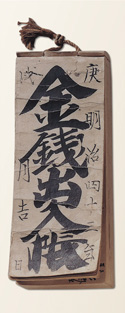 庚
明治四十三年
金銭出入帳
戌
月吉日